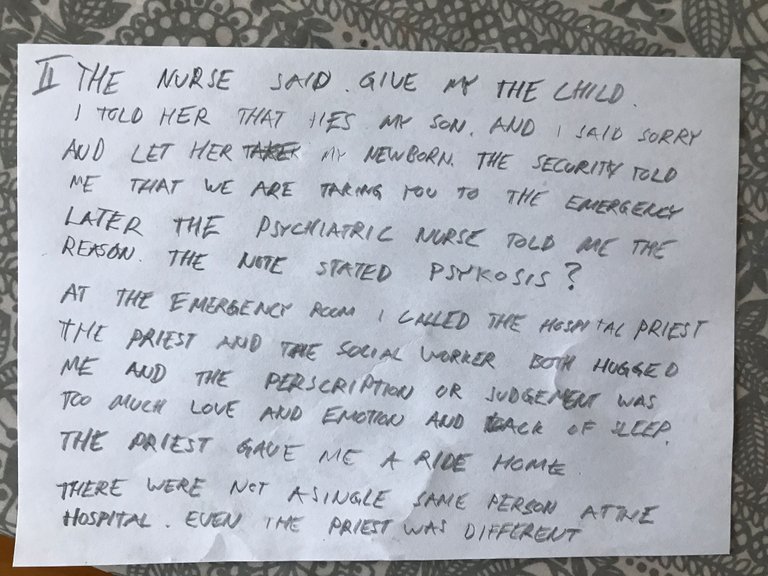 II THE NURSE SAID. GIVE MY THE CHILD.
I TOLD HER THAT HES MY SON. AND I SAID SORRY
AND LET HER TAKE MY NEWBORN. THE SECURITY TOLD
ME THAT WE ARE TAKING YOU TO THE EMERGENCY
LATER THE PSYCHIATRIC NURSE TOLD ME THE
REASON. THE NOTE STATED PSYKOSIS?
AT THE EMERGENCY ROOM I CALLED THE HOSPITAL PRIEST
THE PRIEST AND THE SOCIAL WORKER BOTH HUGGED
ME AND THE PERSCRIPTION OR JUDGEMENT WAS
TOO MUCH LOVE AND EMOTION AND LACK OF SLEEP.
THE PRIEST GAVE ME A RIDE HOME
THERE WERE NOT A SINGLE SAME PERSON AT THE
HOSPITAL. EVEN THE PRIEST WAS DIFFERENT